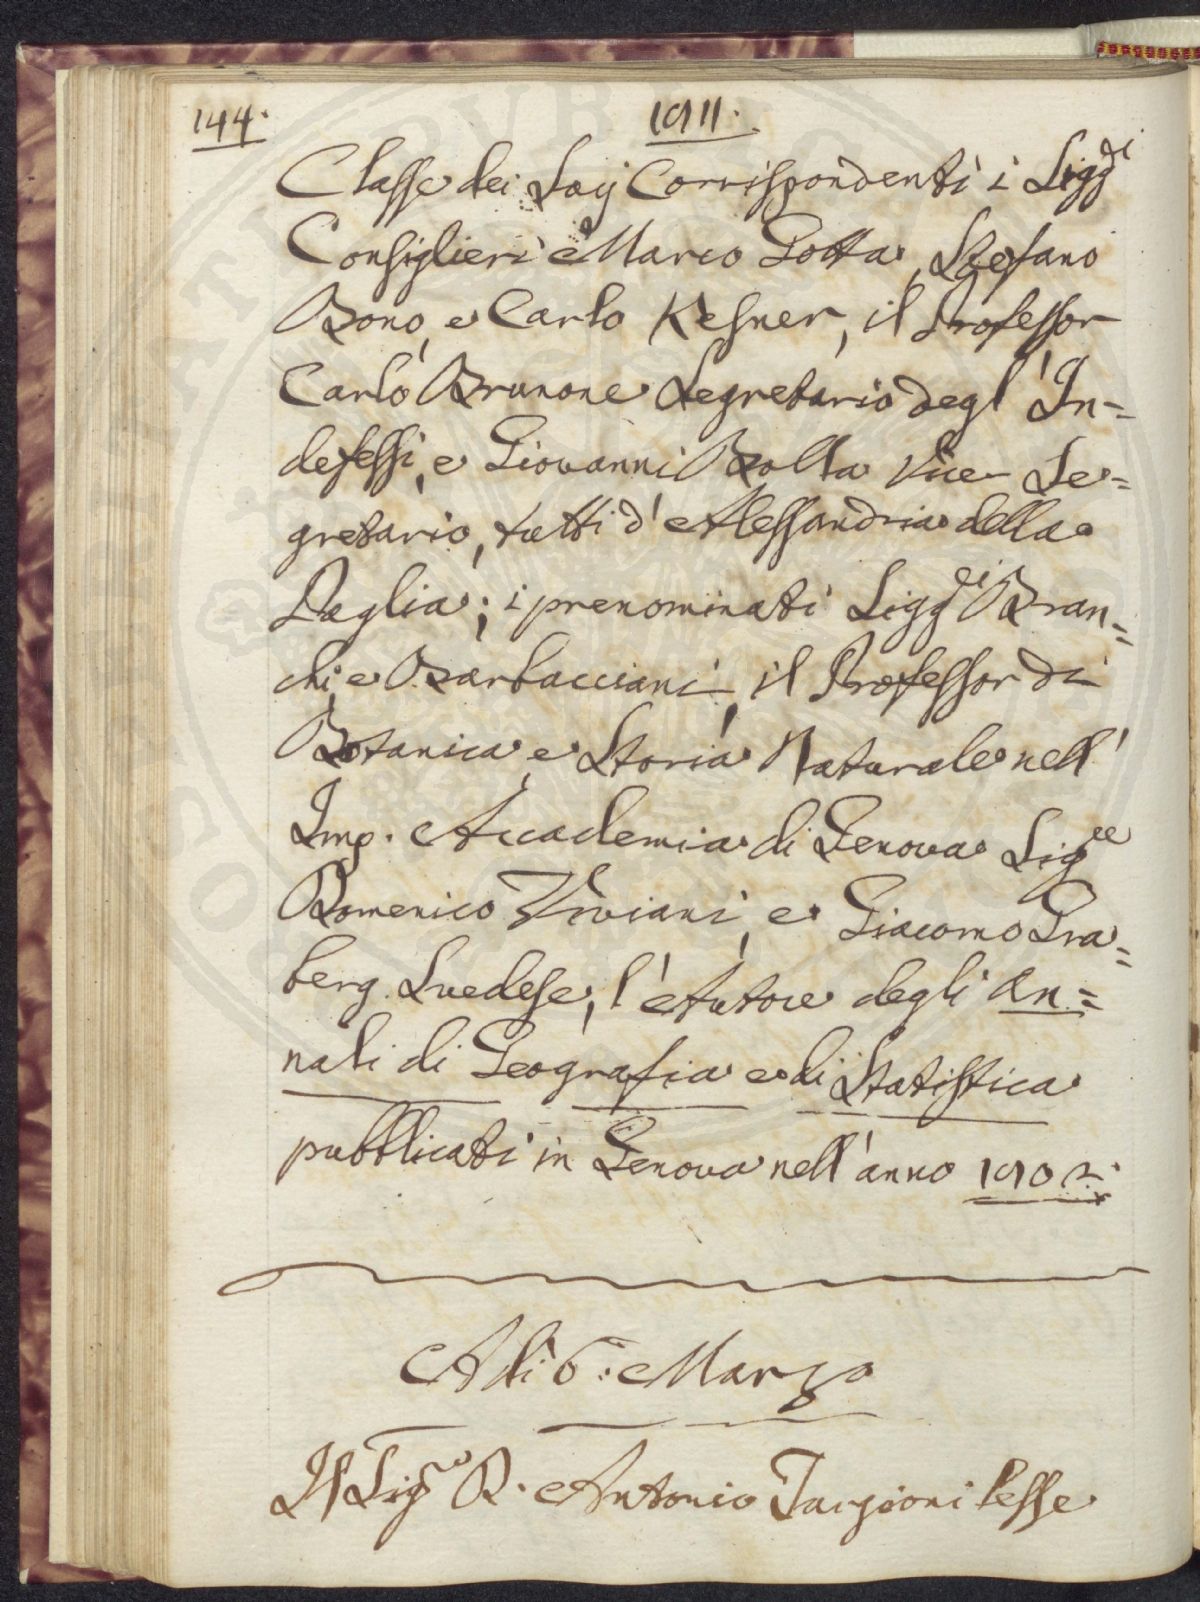 144. 1811.
Classe dei Socj Corrispondenti i Sigg.ri
Consiglieri Marco Gotta, Stefano
Bono, e Carlo Kesner, il Professor
Carlo Brunone Segretario degl' In=
defessi, e Giovanni Bolla Vice-Se=
gretario, tutti d'Alessandria della
Paglia; i prenominati Sigg.ri Bran=
chi, e Barbacciani, il Professor di
Botanica, e Storia Naturale nell'
Imp. Accademia di Genova Sig.re
Domenico Viviani, e Giacomo Gra=
berg Svedese, l'Autore degli An=
nali di Geografia e di Statistica
pubblicati in Genova nell'anno 1802.
Adì 6. Marzo
Il Sig.re D. Antonio Targioni lesse